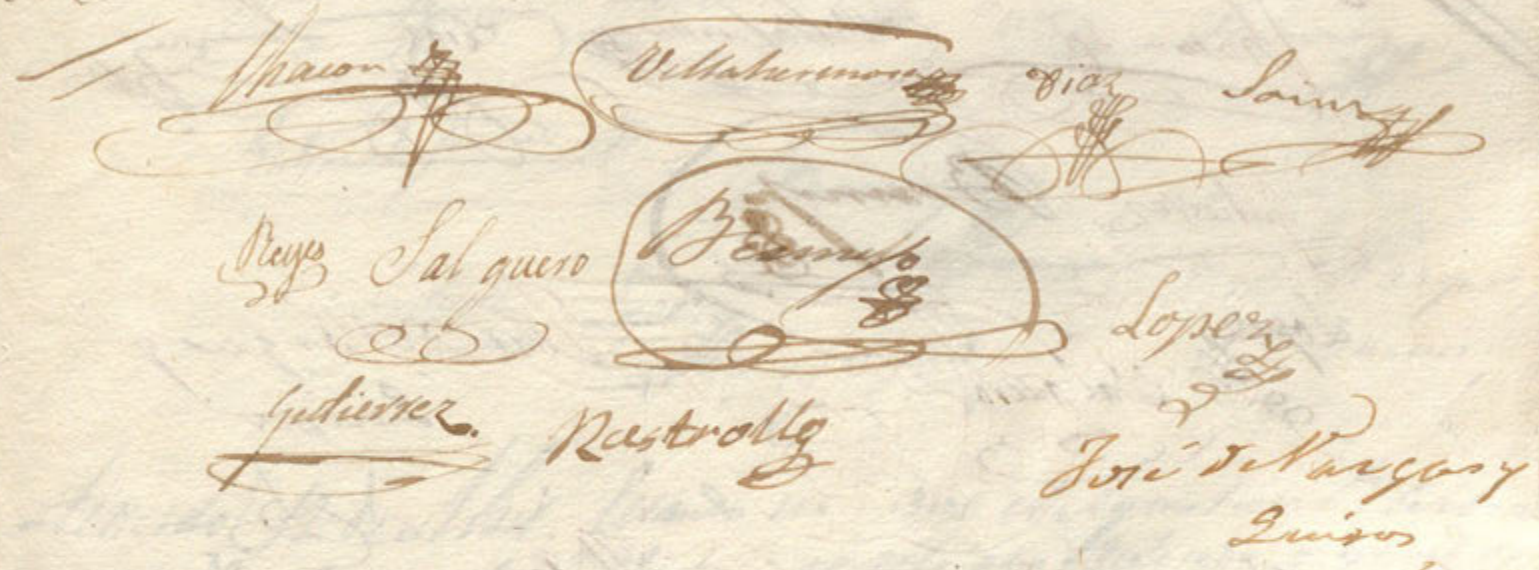 Chacon Villahermosa Diaz Sainz
Reyes Salguero Bermejo Lopez
Gutierrez Rastrollo
José de Vargas y
Quiros